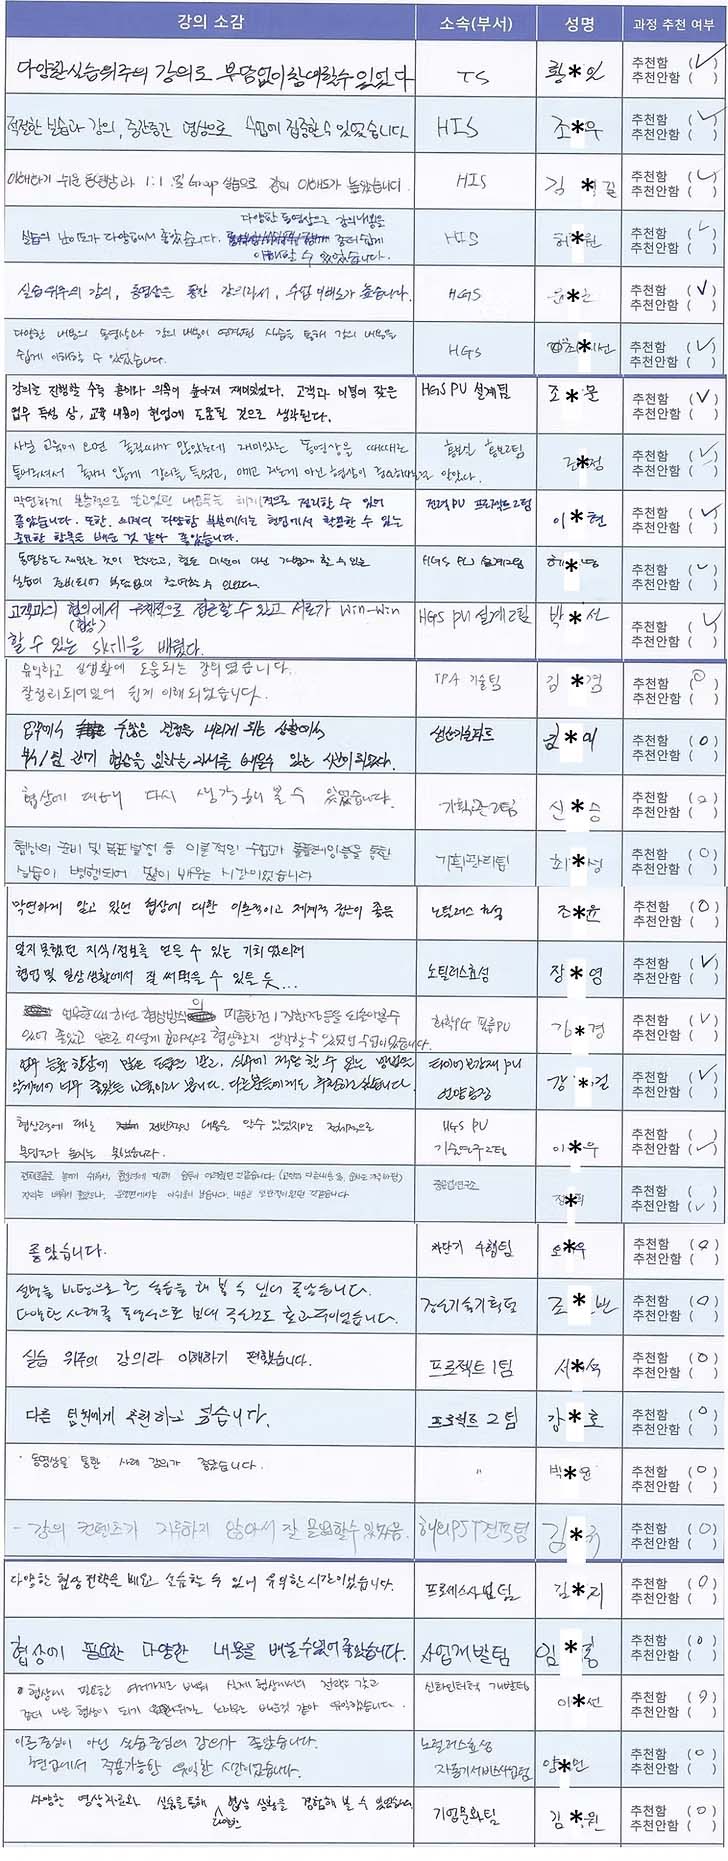 강의 소감 소속(부서) 성명 과정 추천 여부
다양한 실습위주의 강의로 부담없이 참여할수 있었다 TS 황*인 추천함 (✓)
추천안함 ( )
적절한 실습과 강의, 중간중간 영상으로 수업에 집중할 수 있었습니다 HIS 조*우 추천함 (✓)
추천안함 ( )
이해하기 쉬운 동영상과 1:1 및 Group 실습으로 강의 이해도가 높았습니다. HIS 김* 추천함 (✓)
추천안함 ( )
다양한 동영상으로 강의내용을
실습의 난이도가 다양해서 좋았습니다. HIS 허*원 추천함 (✓)
이해할 수 있었습니다. 추천안함 ( )
실습위주의 강의, 동영상을 통한 강의라서, 수업 이해도가 높습니다. HGS 추천함 (✓)
추천안함 ( )
다양한 내용의 동영상과 강의 내용이 연계된 실습을 통해 강의 내용을 HGS 추천함 (✓)
쉽게 이해할 수 있었습니다. 추천안함 ( )
강의를 진행할 수록 흥미와 의욕이 높아져 재미있었다. 고객과 미팅이 잦은 HGS PU 설계팀 조*문 추천함 (✓)
업무 특성 상, 교육 내용이 현업에 도움될 것으로 생각된다. 추천안함 ( )
사실 교육에 오면 졸릴때가 많았는데 재미있는 동영상을 때때로 홍보실 홍보2팀 *정 추천함 (✓)
틀어주셔서 졸리지 않게 강의를 들었고, 추천안함 ( )
막연하게 본능적으로 알고있던 내용들을 체계적으로 정리할 수 있어 전력PU 프로젝트2팀 이*현 추천함 (✓)
좋았습니다. 또한, 의 다양한 부분에서는 현업에서 활용할 수 있는 추천안함 ( )
중요한 항목을 배운 것 같아 좋았습니다.
동영상도 재밌는 것이 많았고, 힘든 미션이 아닌 가볍게 할 수 있는 HGS PU 설계2팀 추천함 (✓)
실습이 준비되어 부담없이 참여할 수 있었다. 추천안함 ( )
고객과의 협의에서 구체적으로 접근할 수 있고 서로가 win-win HGS PU 설계2팀 박*선 추천함 (✓)
(협상)
할 수 있는 skill을 배웠다. 추천안함 ( )
유익하고 실생활에 도움되는 강의였습니다.. TPA 기술팀 김*겸 추천함 (○)
잘정리되어있어 쉽게 이해되었습니다. 추천안함 ( )
업무에서 수많은 결정을 내리게 되는 상황에서 생산기술파트 김*미 추천함 (○)
부서/팀 간의 협상을 임하는 자세를 배울수 있는 시간이 되었다. 추천안함 ( )
협상에 대해 다시 생각해 볼 수 있었습니다. 기획2팀 신*승 추천함 (○)
추천안함 ( )
협상의 준비 및 목표설정 등 이론적인 수업과 롤플레잉등을 통한 기획관리팀 최*성 추천함 (○)
실습이 병행되어 많이 배우는 시간이었습니다 추천안함 ( )
막연하게 알고 있던 협상에 대한 이론적이고 체계적 접근이 좋음 노틸러스 효성 조*윤 추천함 (○)
추천안함 ( )
알지 못했던 지식/정보를 얻을 수 있는 기회였으며 노틸러스효성 장*영 추천함 (✓)
협업 및 일상생활에서 잘 써먹을 수 있을 듯... 추천안함 ( )
업무할때 하던 협상방식의 미흡한점/ 장점등을 되돌아볼수 화학PG 필름PU 김*경 추천함 (✓)
있어 좋았고 앞으로 어떻게 효과적으로 협상할지 생각할수 있었던 수업이었습니다. 추천안함 ( )
업무 능률 향상에 많은 도움을 받고, 실무에 적용 할 수 있는 방법을 타이어보강재 PU 강*걸 추천함 (✓)
알게되어 너무 좋았던 교육이라 봅니다. 다른분들에게도 추천하고 싶습니다. 언양공장 추천안함 ( )
협상력에 대한 전반적인 내용을 알수 있었지만 전체적으로 HGS PU 이*우 추천함 ( )
몰입도가 높지는 못했습니다. 기술연구2팀 추천안함 (✓)
중공업연구소 정*희 추천함 ( )
추천안함 (✓)
좋았습니다. 차단기 수행팀 오*우 추천함 (○)
추천안함 ( )
설명을 바탕으로 한 실습을 해 볼 수 있어 좋았습니다. 생산기술기획팀 조*빈 추천함 (○)
다양한 사례를 동영상으로 보며 추천안함 ( )
실습 위주의 강의라 이해하기 편했습니다. 프로젝트1팀 서*석 추천함 (○)
추천안함 ( )
다른 팀원에게 추천하고 싶습니다. 프로젝트 2팀 강*호 추천함 (○)
추천안함 ( )
· 동영상을 통한 사례 강의가 좋았습니다. " 박*윤 추천함 (○)
추천안함 ( )
- 강의 컨텐츠가 지루하지 않아서 잘 몰입할수있었음. 해외PJT견적팀 김*규 추천함 (○)
추천안함 ( )
다양한 협상전략을 배우고 실습할 수 있어 유익한 시간이었습니다. 프로세스사업팀 김*지 추천함 (○)
추천안함 ( )
협상에 필요한 다양한 내용을 배울수있어 좋았습니다. 사업개발팀 임*홍 추천함 (○)
추천안함 ( )
협상에 필요한 여러가지를 배워 실제 협상에서의 전략을 갖고 신화인터텍 개발팀 이*선 추천함 (○)
좀더 나은 협상이 되기 위한 노하우를 배운것 같아 유익했습니다. 추천안함 ( )
이론중심이 아닌 실습중심의 강의가 좋았습니다. 노틸러스효성 양*민 추천함 (○)
현업에서 적용가능한 유익한 시간이었습니다. 자동기서비스사업팀 추천안함 ( )
다양한 영상자료와 실습을통해 협상 상황을 경험해 볼 수 있었습니다 기업문화팀 김*원 추천함 (○)
다양한 추천안함 ( )